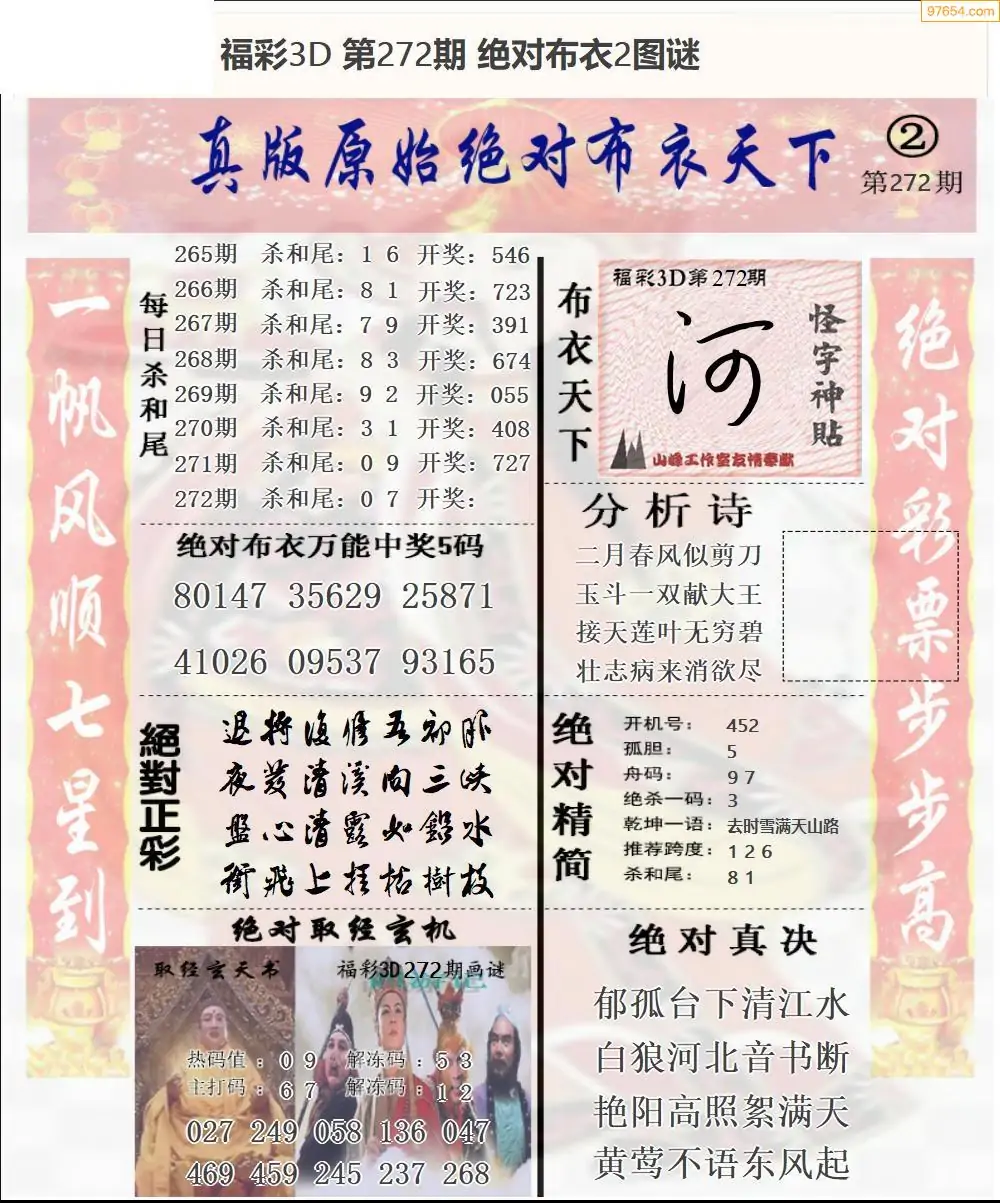 97654.com
福彩3D 第272期 绝对布衣2图谜
真版原始绝对布衣天下
②
第272期
一帆风顺七星到
每日杀和尾
265期 杀和尾：1 6 开奖：546
266期 杀和尾：8 1 开奖：723
267期 杀和尾：7 9 开奖：391
268期 杀和尾：8 3 开奖：674
269期 杀和尾：9 2 开奖：055
270期 杀和尾：3 1 开奖：408
271期 杀和尾：0 9 开奖：727
272期 杀和尾：0 7 开奖：
绝对布衣万能中奖5码
80147 35629 25871
41026 09537 93165
絕對正彩
夜发清溪向三峡
盤心清露如鉛水
衝飛上挂枯樹枝
绝对取经玄机
取经玄天书
福彩3D272期画谜
热码值：0 9 解冻码：5 3
主打码：6 7 解冻码：1 2
027 249 058 136 047
469 459 245 237 268
布衣天下
福彩3D第272期
河
怪字神貼
山峰工作室友情奉献
分析诗
二月春风似剪刀
玉斗一双献大王
接天莲叶无穷碧
壮志病来消欲尽
绝对精简
开机号： 452
孤胆： 5
舟码： 9 7
绝杀一码： 3
乾坤一语： 去时雪满天山路
推荐跨度： 1 2 6
杀和尾： 8 1
绝对真决
郁孤台下清江水
白狼河北音书断
艳阳高照絮满天
黄莺不语东风起
绝对彩票步步高